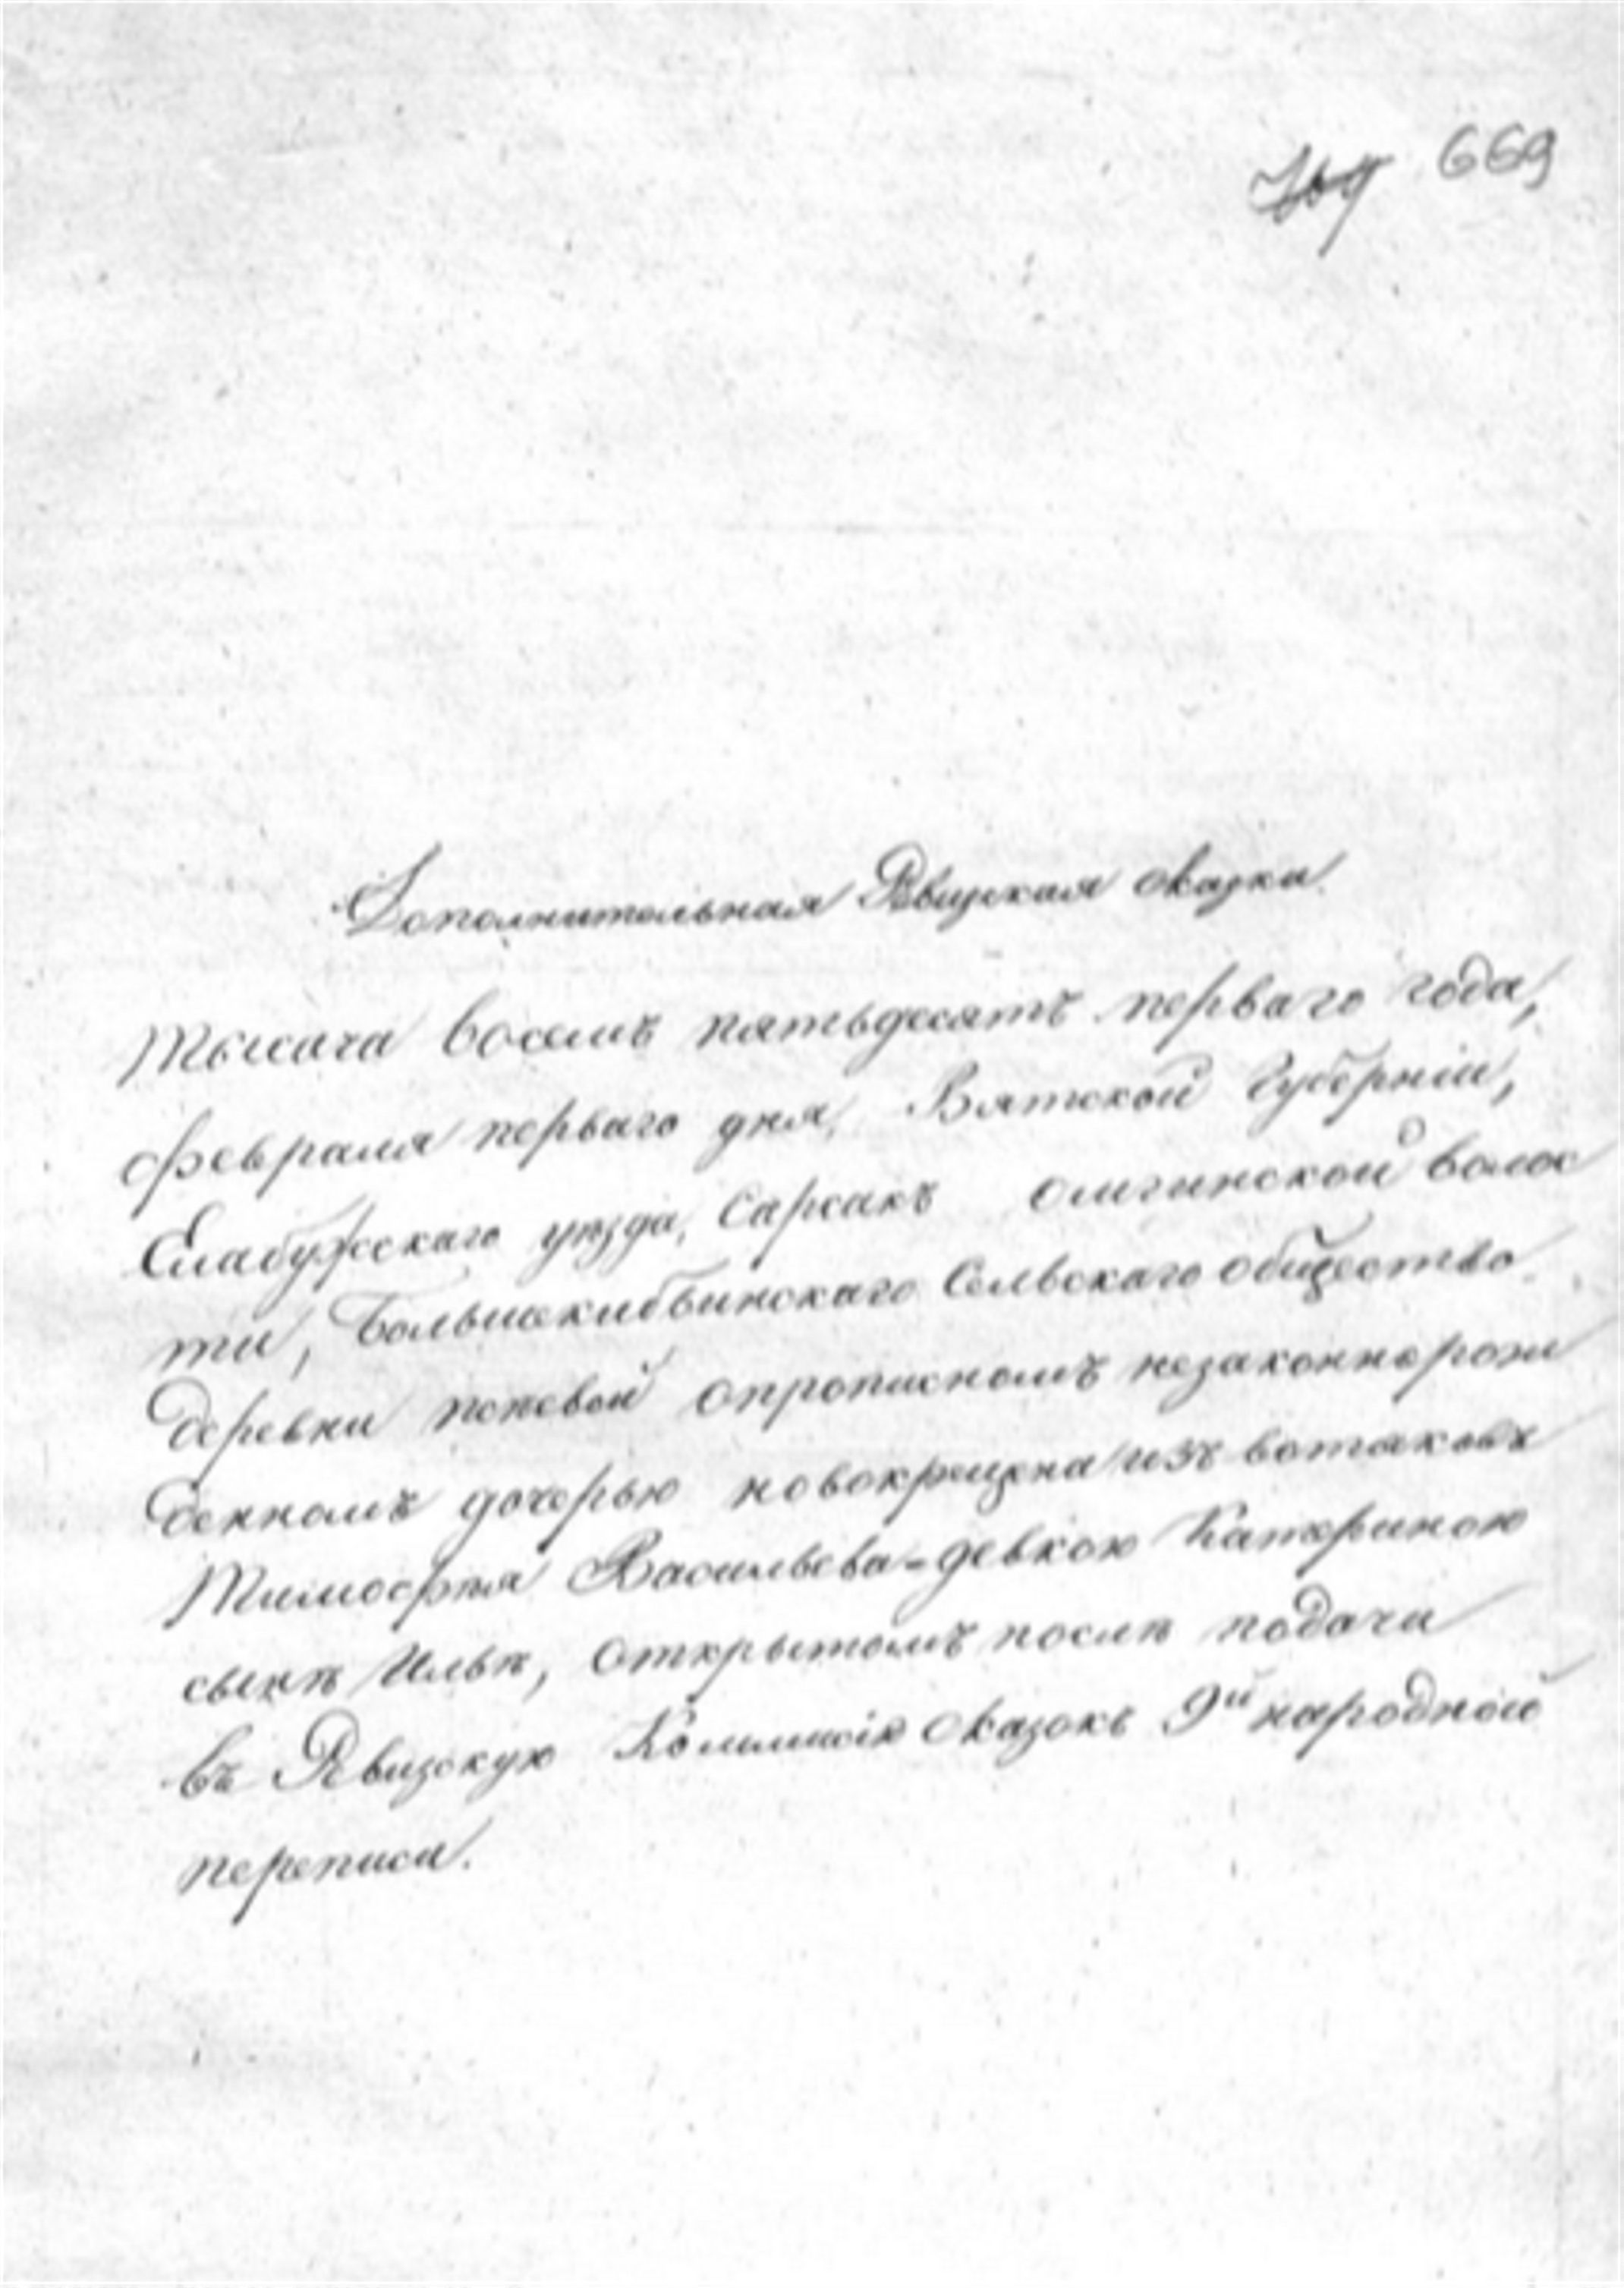 669
Дополнительная Ревизская сказка
Тысяча восемъ пятьдесятъ перваго года,
февраля перваго дня, Вятской Губерніи,
Елабужскаго уѣзда, Сарсакъ Омгинской волос
ти, Большекибьинскаго Сельскаго общество
деревни опрописномъ незаконнорож
денномъ дочерью новокрещена изъ вотяковъ
Тимофѣя Васильева-девкою Катериною
сынѣ Ильѣ, открытомъ послѣ подачи
въ Ревизскую Коммисію сказокъ 9й народной
переписи.